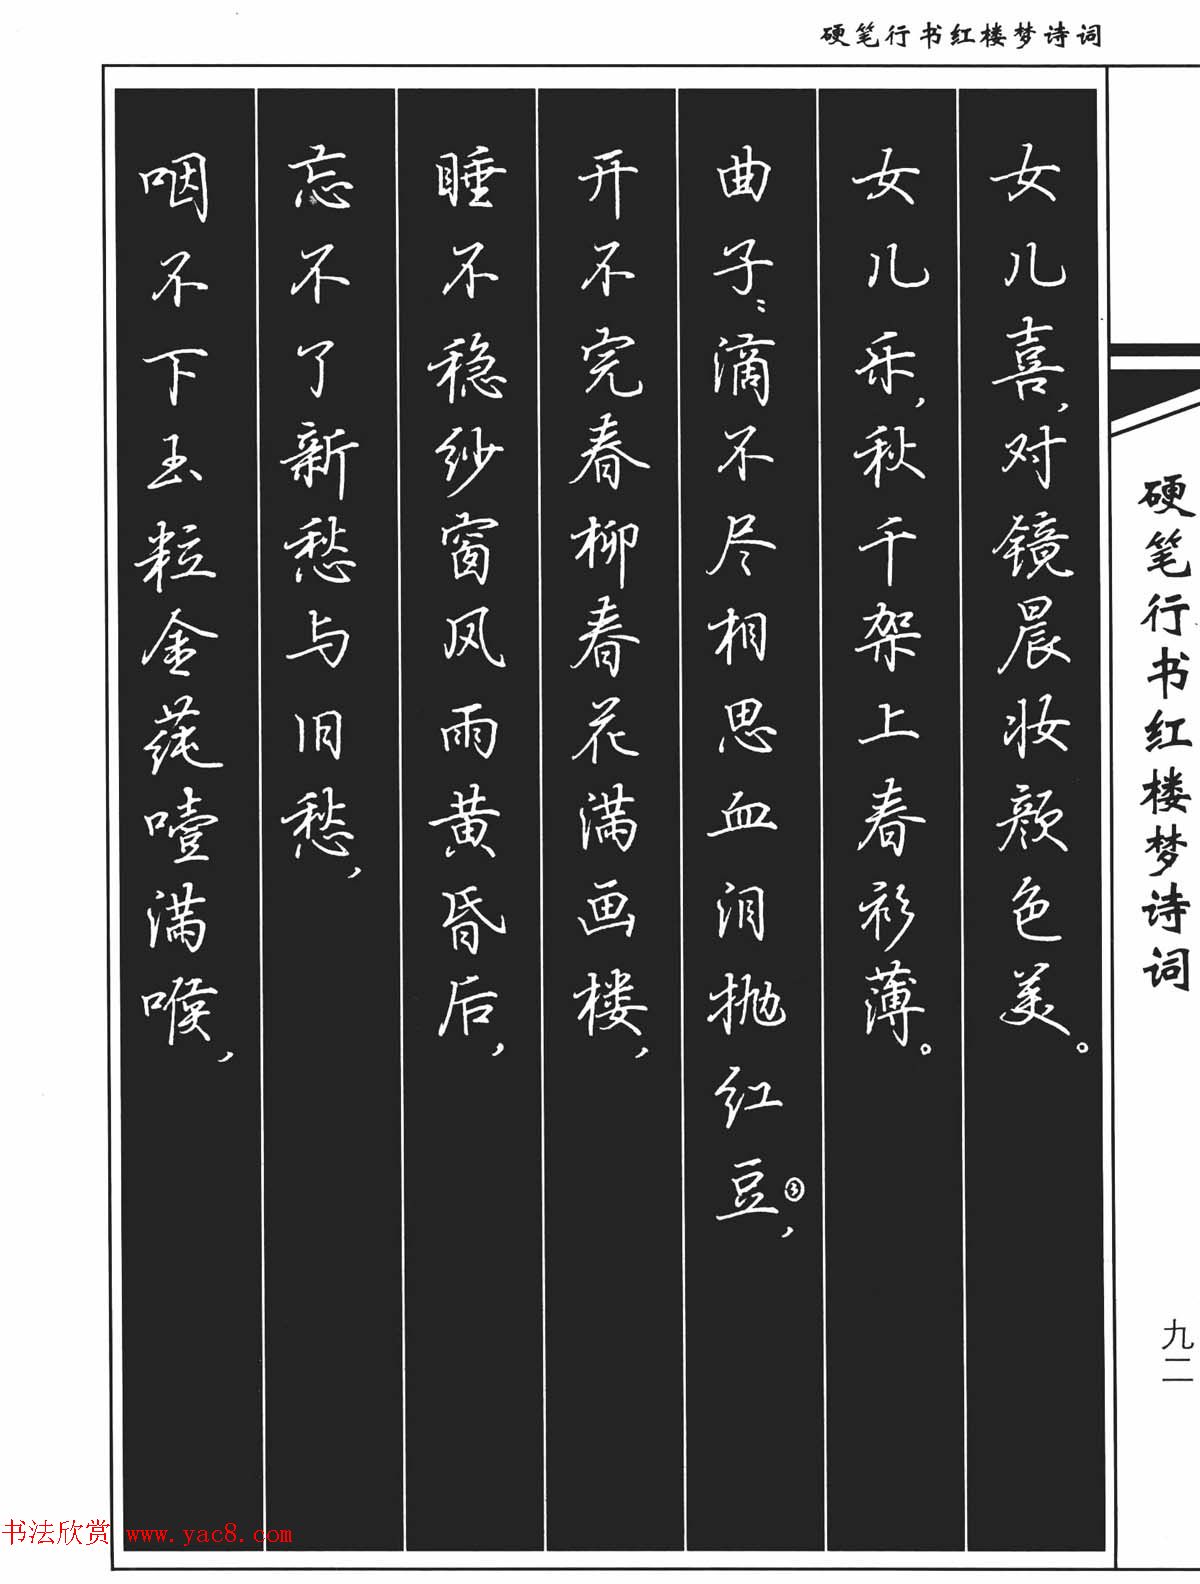 硬笔行书红楼梦诗词
女儿喜，对镜晨妆颜色美。
女儿乐，秋千架上春衫薄。
曲子：滴不尽相思血泪抛红豆③，
开不完春柳春花满画楼，
睡不稳纱窗风雨黄昏后，
忘不了新愁与旧愁，
咽不下玉粒金莼噎满喉，
硬笔行书红楼梦诗词
九二
书法欣赏 www.yac8.com